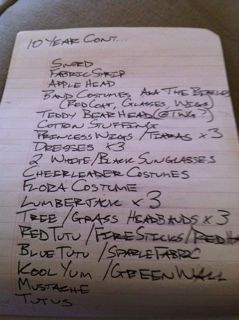 10 YEAR CONT...
SWORD
FABRIC STRIP
APPLE HEAD
BAND COSTUMES AKA THE BEATLES
(RED COAT, GLASSES, WIGS)
TEDDY BEAR HEAD (@TNG?)
COTTON STUFFING
PRINCESS WIGS / TIARAS x 3
DRESSES x3
2 WHITE/BLACK SUNGLASSES
CHEERLEADER COSTUMES
FLORA COSTUME
LUMBERJACK x 3
TREE / GRASS HEADBANDS x 3
RED TUTU / FIRE STICKS / RED
BLUE TUTU / SPARE FABRIC
KOOL YUM / GREEN WALL
MUSTACHE
TUTUS